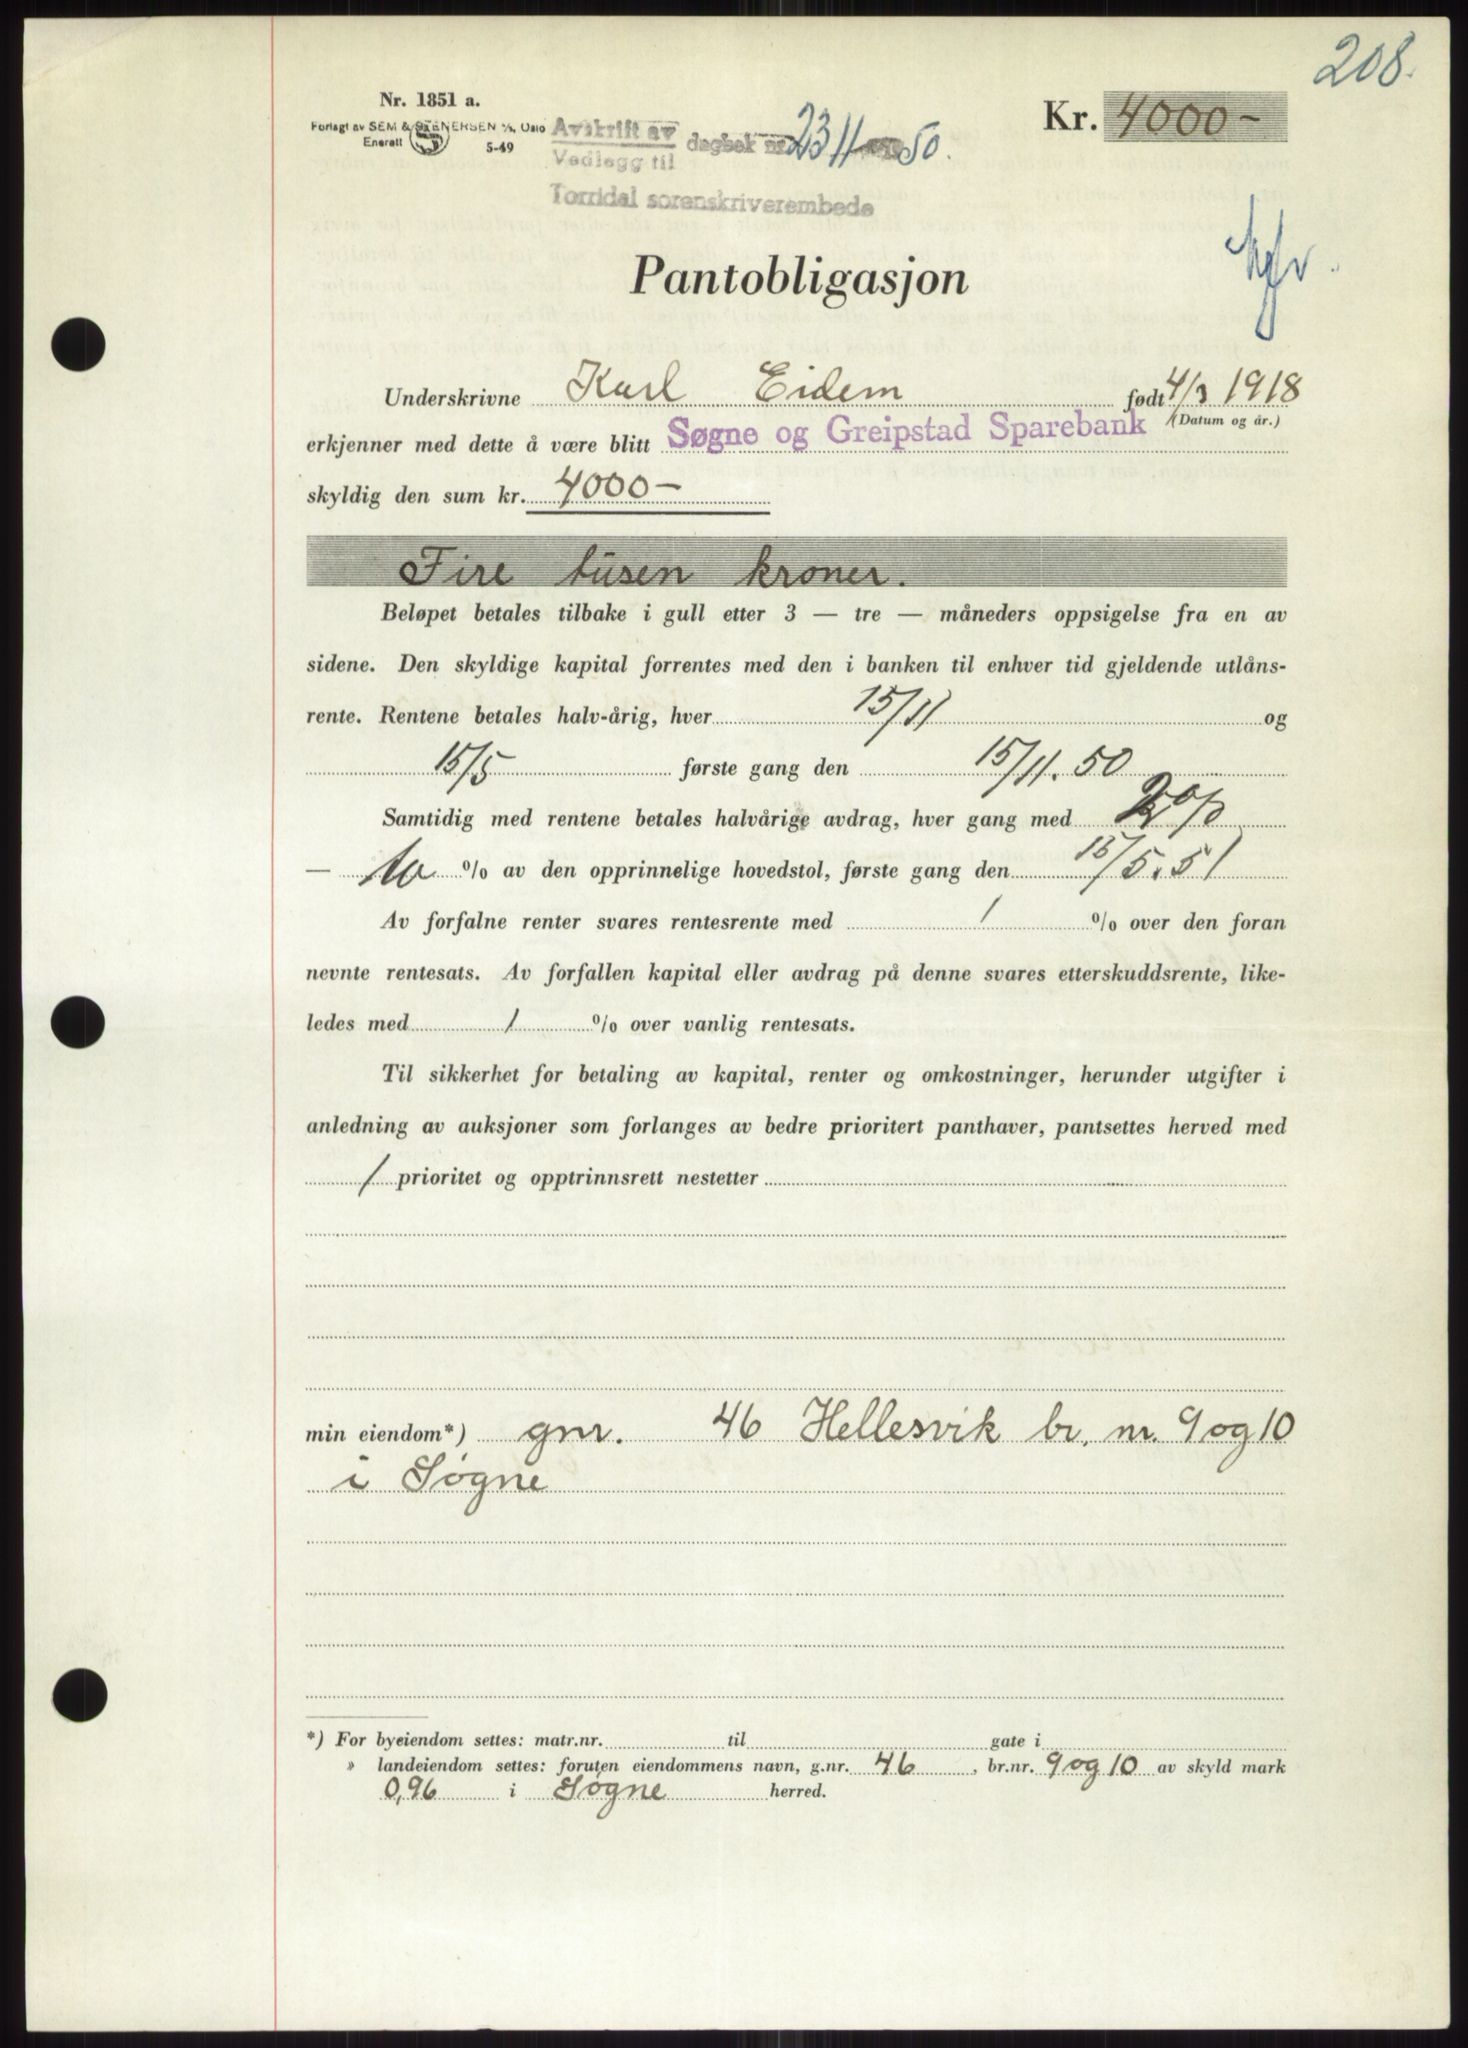 208.
Nr. 1851 a.
Forlagt av SEM & STENERSEN A/S, Oslo
Enerett 5-49
Avskrift av
Vedlegg til dagbok nr. 2311 50.
Torridal sorenskriverembede
Kr. 4000 -
Pantobligasjon
Underskrivne Karl Eidem født 4/3 1918
(Datum og år.)
erkjenner med dette å være blitt Søgne og Greipstad Sparebank
skyldig den sum kr. 4000 -
Fire tusen kroner.
Beløpet betales tilbake i gull etter 3 — tre — måneders oppsigelse fra en av
sidene. Den skyldige kapital forrentes med den i banken til enhver tid gjeldende utlåns-
rente. Rentene betales halv-årig, hver 15/11 og
15/5 første gang den 15/11. 50
Samtidig med rentene betales halvårige avdrag, hver gang med 2 %
— to % av den opprinnelige hovedstol, første gang den 15/5. 51
Av forfalne renter svares rentesrente med 1 % over den foran
nevnte rentesats. Av forfallen kapital eller avdrag på denne svares etterskuddsrente, like-
ledes med 1 % over vanlig rentesats.
Til sikkerhet for betaling av kapital, renter og omkostninger, herunder utgifter i
anledning av auksjoner som forlanges av bedre prioritert panthaver, pantsettes herved med
1 prioritet og opptrinnsrett nestetter
min eiendom*) gnr. 46 Hellesvik br. nr. 9 og 10
i Søgne
*) For byeiendom settes: matr.nr. til gate i
» landeiendom settes: foruten eiendommens navn, g.nr. 46, br.nr. 9 og 10 av skyld mark
0,96 i Søgne herred.